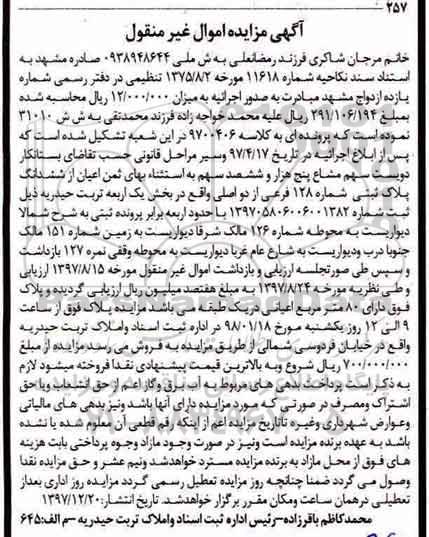 ۲۵۷
آگهی مزایده اموال غیر منقول
خانم مرجان شاکری فرزند رمضانعلی به ش ملی ۰۹۳۸۹۴۸۶۴۴ صادره مشهد به
استناد سند نکاحیه شماره ۱۱۶۱۸ مورخه ۱۳۷۵/۸/۲ تنظیمی در دفتر رسمی شماره
یازده ازدواج مشهد مبادرت به صدور اجرائیه به میزان ۱۲/۰۰۰/۰۰۰ ریال محاسبه شده
بمبلغ ۲۹۱/۱۰۶/۱۹۴ ریال علیه محمد خواجه زاده فرزند محمدتقی به ش ش ۳۱۰۱۰
نموده است که پرونده ای به کلاسه ۹۷۰۰۴۰۶ در این شعبه تشکیل شده است که
پس از ابلاغ اجرائیه در تاریخ ۹۷/۴/۱۷ وسیر مراحل قانونی حسب تقاضای بستانکار
دویست سهم مشاع پنج هزار و ششصد سهم به استثناء بهای ثمن اعیان از ششدانگ
پلاک ثبتی شماره ۱۲۸ فرعی از دو اصلی واقع در بخش یک اربعه تربت حیدریه ذیل
ثبت شماره ۱۳۹۷۰۵۸۰۶۰۰۶۰۰۱۳۸۲ با حدود اربعه برابر پرونده ثبتی به شرح شمالا
دیواریست به محوطه شماره ۱۲۶ مالک شرقا دیواریست به زمین شماره ۱۵۱ مالک
جنوبا درب ودیواریست به شارع عام غربا دیواریست به محوطه وقفی نمره ۱۲۷ بازداشت
و سپس طی صورتجلسه ارزیابی و بازداشت اموال غیر منقول مورخه ۱۳۹۷/۸/۱۵ ارزیابی
و طی نظریه مورخه ۱۳۹۷/۸/۲۴ به مبلغ هفتصد میلیون ریال ارزیابی گردیده و پلاک
فوق دارای ۸۰ متر مربع اعیانی در یک طبقه می باشد مزایده پلاک فوق از ساعت
۹ الی ۱۲ روز یکشنبه مورخ ۹۸/۰۱/۱۸ در اداره ثبت اسناد واملاک تربت حیدریه
واقع در خیابان فردوسی شمالی از طریق مزایده به فروش می رسد مزایده از مبلغ
۷۰۰/۰۰۰/۰۰۰ ریال شروع وبه بالاترین قیمت پیشنهادی نقدا فروخته میشود لازم
به ذکر است پرداخت بدهی های مربوط به آب برق وگاز اعم از حق انشعاب ویا حق
اشتراک ومصرف در صورتی که مورد مزایده دارای آنها باشد ونیز بدهی های مالیاتی
وعوارض شهرداری وغیره تاتاریخ مزایده اعم از اینکه رقم قطعی آن معلوم شده یا نشده
باشد به عهده برنده مزایده است ونیز در صورت وجود مازاد وجوه پرداختی بابت هزینه
های فوق از محل مازاد به برنده مزایده مسترد خواهدشد ونیم عشر و حق مزایده نقدا
وصول می گردد ضمنا چنانچه روز مزایده تعطیل رسمی گردد مزایده روز اداری بعداز
تعطیلی درهمان ساعت ومکان مقرر برگزار خواهدشد. تاریخ انتشار: ۱۳۹۷/۱۲/۲۰
محمدکاظم باقرزاده-رئیس اداره ثبت اسناد واملاک تربت حیدریه -م الف:۶۴۵